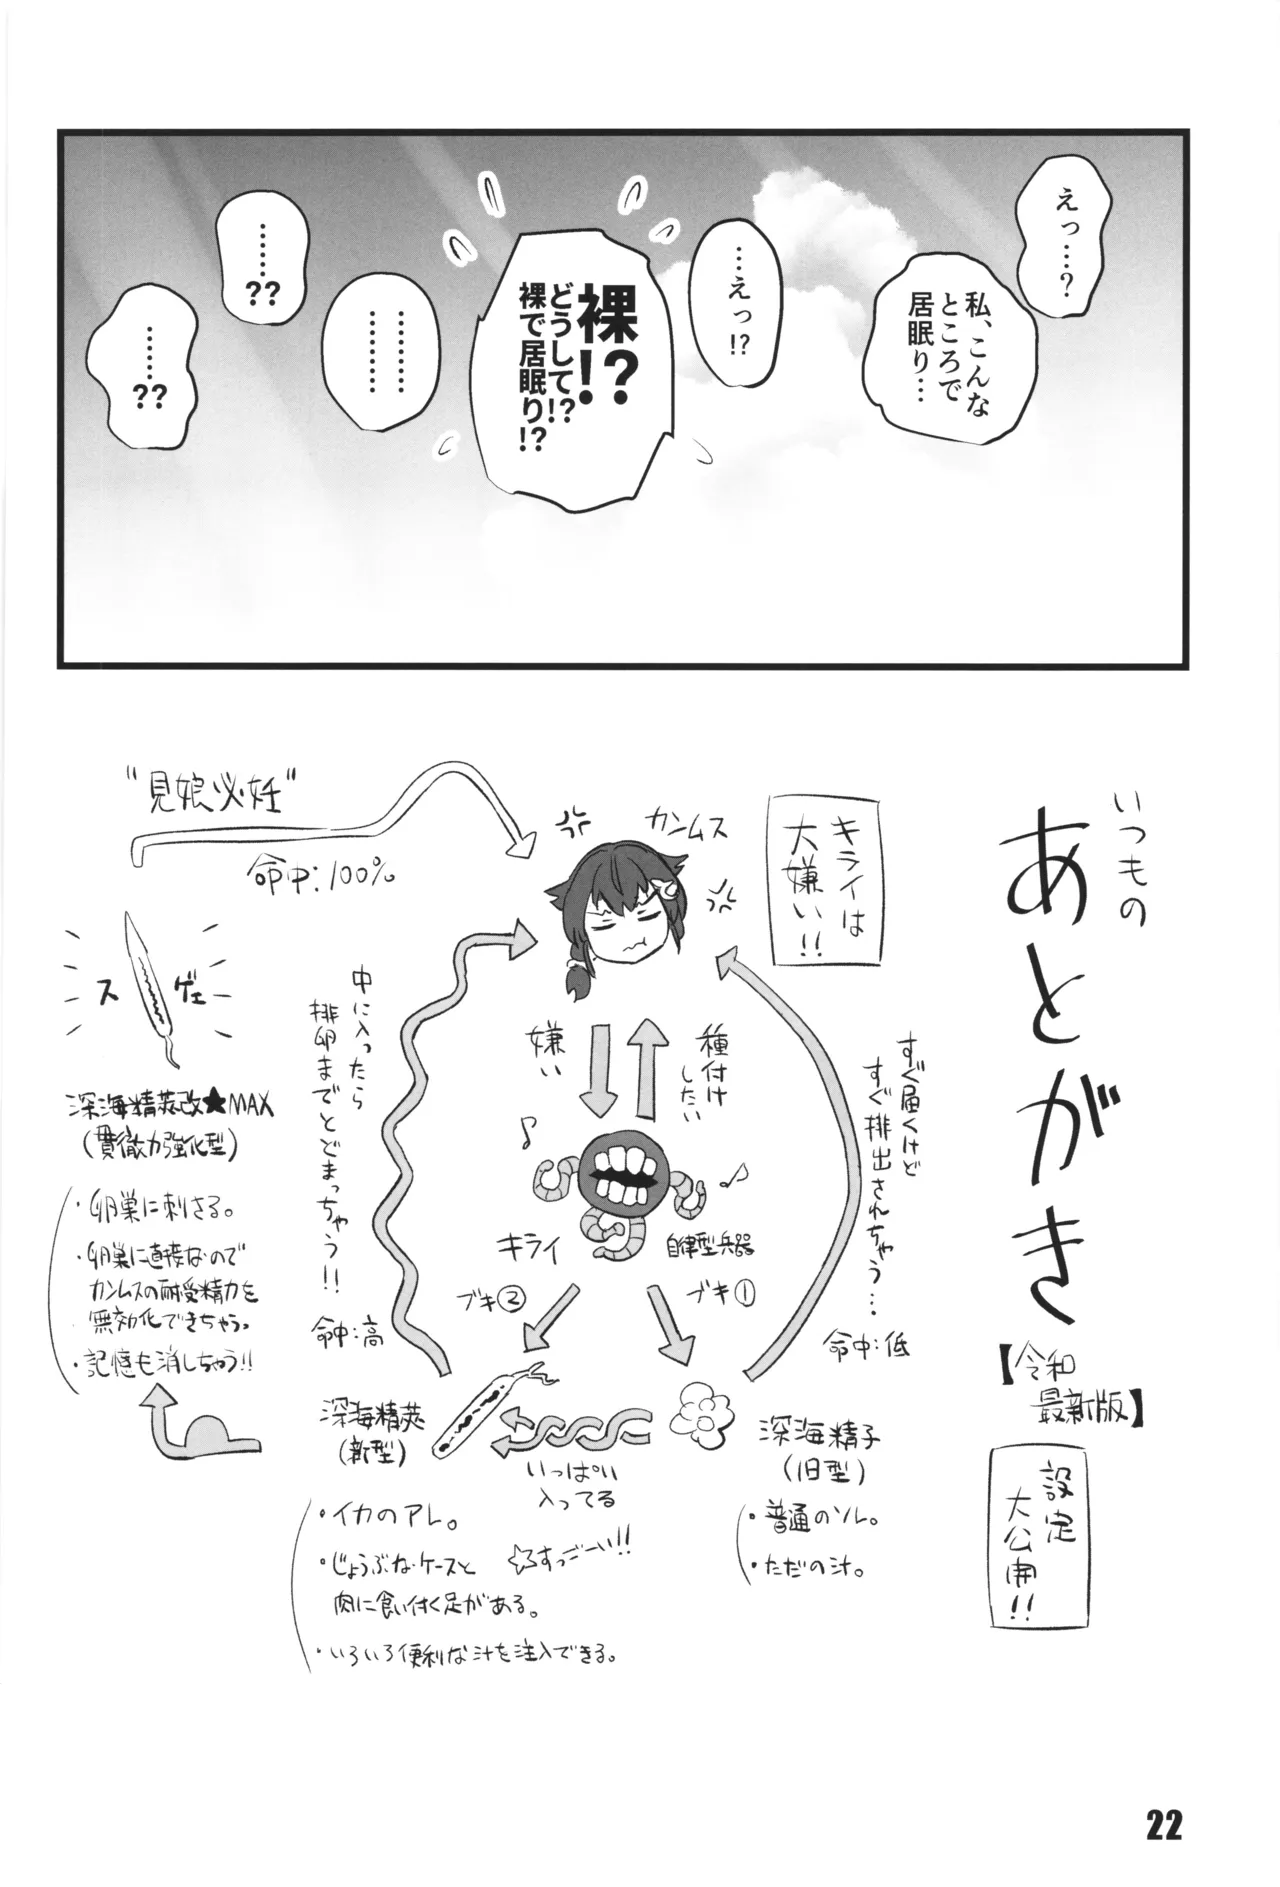 えっ…？
私、こんな
ところで
居眠り…
…えっ!?
裸?!
どうして!?
裸で居眠り!?
………
………
……??
……??
いつもの
あとがき
【令和
最新版】
設定
大公開!!
キライは
大嫌い!!
カンムス
"見娘必妊"
命中:100%
嫌い
種付け
したい
すぐ届くけど
すぐ排出されちゃう…
命中:低
中に入ったら
排卵までとどまっちゃう!!
命中:高
キライ
自律型兵器
ブキ①
ブキ②
深海精子
(旧型)
・普通のソレ。
・ただの汁。
いっぱい
入ってる
深海精莢
(新型)
・イカのアレ。
・じょうぶなケースと
肉に食い付く足がある。
☆すっごーい!!
・いろいろ便利な汁を注入できる。
スゲェ
深海精莢改★MAX
(貫徹力強化型)
・卵巣に刺さる。
・卵巣に直接なので
カンムスの耐受精力を
無効化できちゃう。
・記憶も消しちゃう!!
22